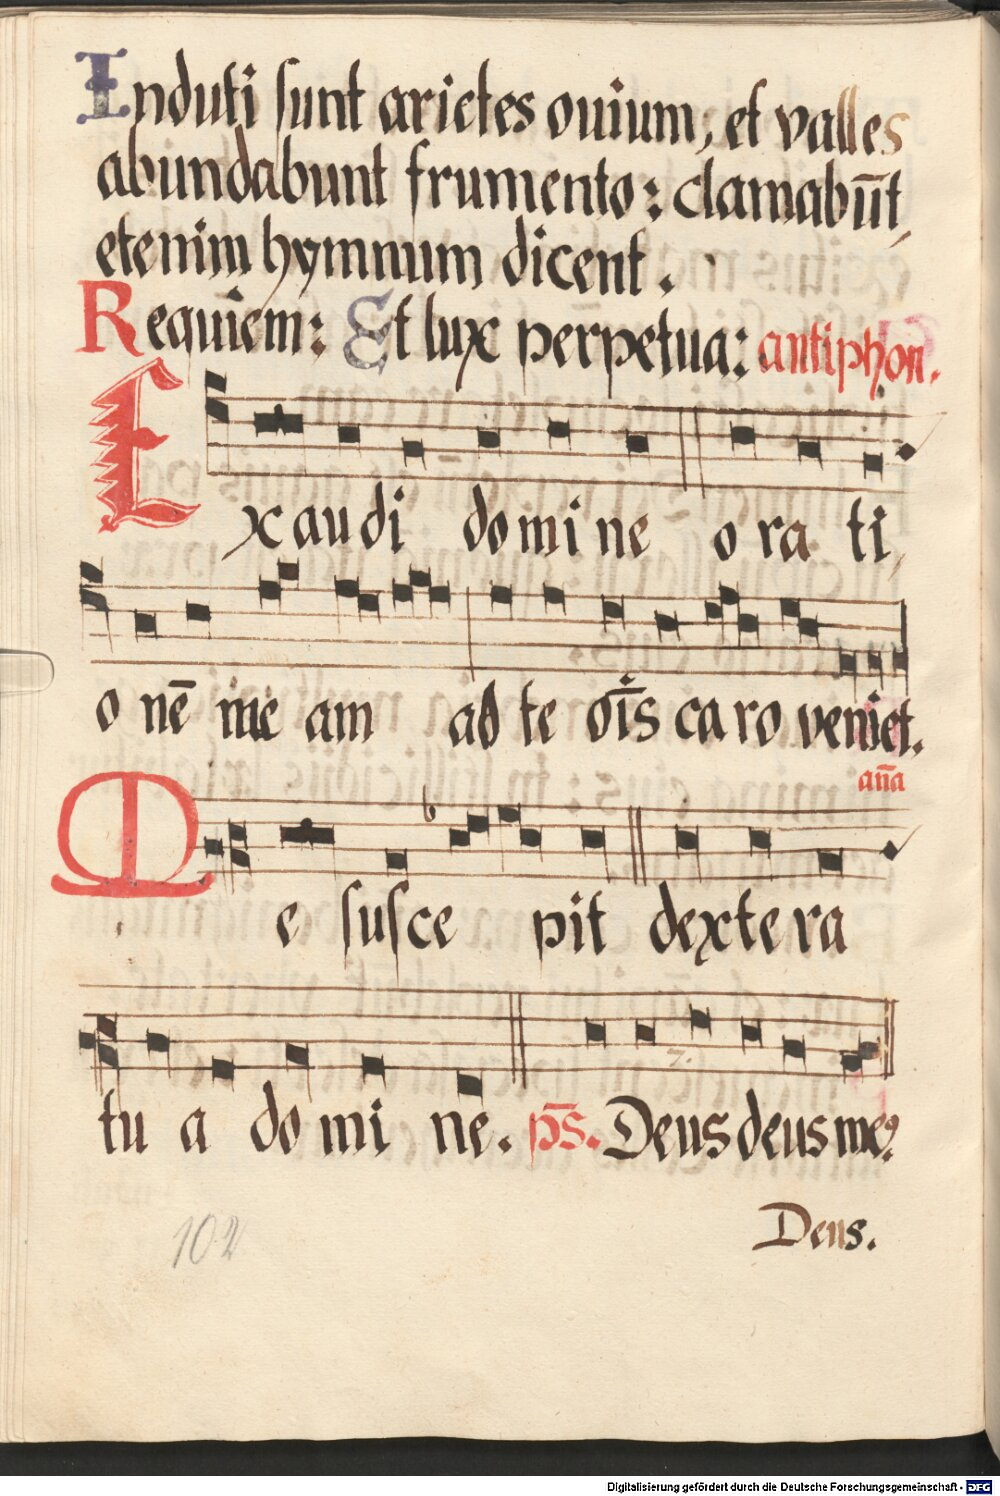 Induti sunt arietes ouium, et valles
abundabunt frumento: clamabūt,
etenim hymnum dicent.
Requiem: Et lux perpetua: antiphon.
Exaudi domine orati,
onē meam ab te oīs caro veniet.
aña
Me suscepit dextera
tua domine. ps̄. Deus deus me9
Deus.
102
Digitalisierung gefördert durch die Deutsche Forschungsgemeinschaft - DFG